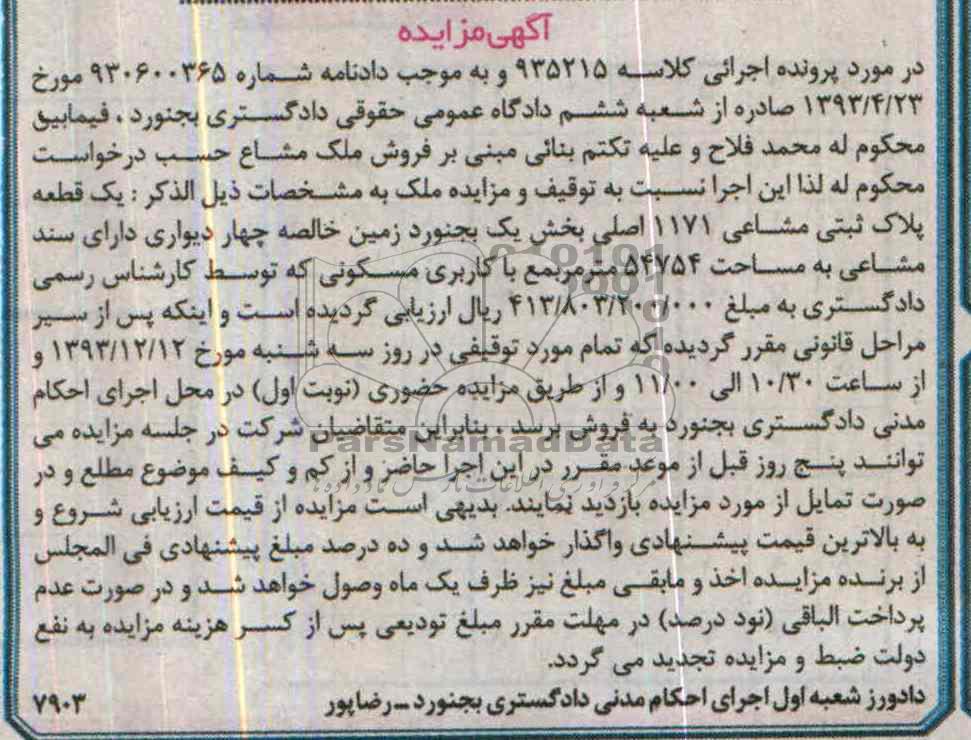 آگهی مزایده
در مورد پرونده اجرائی کلاسه ۹۳۵۲۱۵ و به موجب دادنامه شماره ۹۳۰۶۰۰۳۶۵ مورخ
۱۳۹۳/۴/۲۳ صادره از شعبه ششم دادگاه عمومی حقوقی دادگستری بجنورد ، فیمابین
محکوم له محمد فلاح و علیه تکتم بنائی مبنی بر فروش ملک مشاع حسب درخواست
محکوم له لذا این اجرا نسبت به توقیف و مزایده ملک به مشخصات ذیل الذکر : یک قطعه
پلاک ثبتی مشاعی ۱۱۷۱ اصلی بخش یک بجنورد زمین خالصه چهار دیواری دارای سند
مشاعی به مساحت ۵۴۷۵۴ مترمربمع با کاربری مسکونی که توسط کارشناس رسمی
دادگستری به مبلغ ۴۱۳/۸۰۳/۲۰۰/۰۰۰ ریال ارزیابی گردیده است و اینکه پس از سیر
مراحل قانونی مقرر گردیده که تمام مورد توقیفی در روز سه شنبه مورخ ۱۳۹۳/۱۲/۱۲ و
از ساعت ۱۰/۳۰ الی ۱۱/۰۰ و از طریق مزایده حضوری (نوبت اول) در محل اجرای احکام
مدنی دادگستری بجنورد به فروش برسد ، بنابراین متقاضیان شرکت در جلسه مزایده می
توانند پنج روز قبل از موعد مقرر در این اجرا حاضر و از کم و کیف موضوع مطلع و در
صورت تمایل از مورد مزایده بازدید نمایند. بدیهی است مزایده از قیمت ارزیابی شروع و
به بالاترین قیمت پیشنهادی واگذار خواهد شد و ده درصد مبلغ پیشنهادی فی المجلس
از برنده مزایده اخذ و مابقی مبلغ نیز ظرف یک ماه وصول خواهد شد و در صورت عدم
پرداخت الباقی (نود درصد) در مهلت مقرر مبلغ تودیعی پس از کسر هزینه مزایده به نفع
دولت ضبط و مزایده تجدید می گردد.
دادورز شعبه اول اجرای احکام مدنی دادگستری بجنورد ـ رضاپور
۷۹۰۳
ParsNamadData